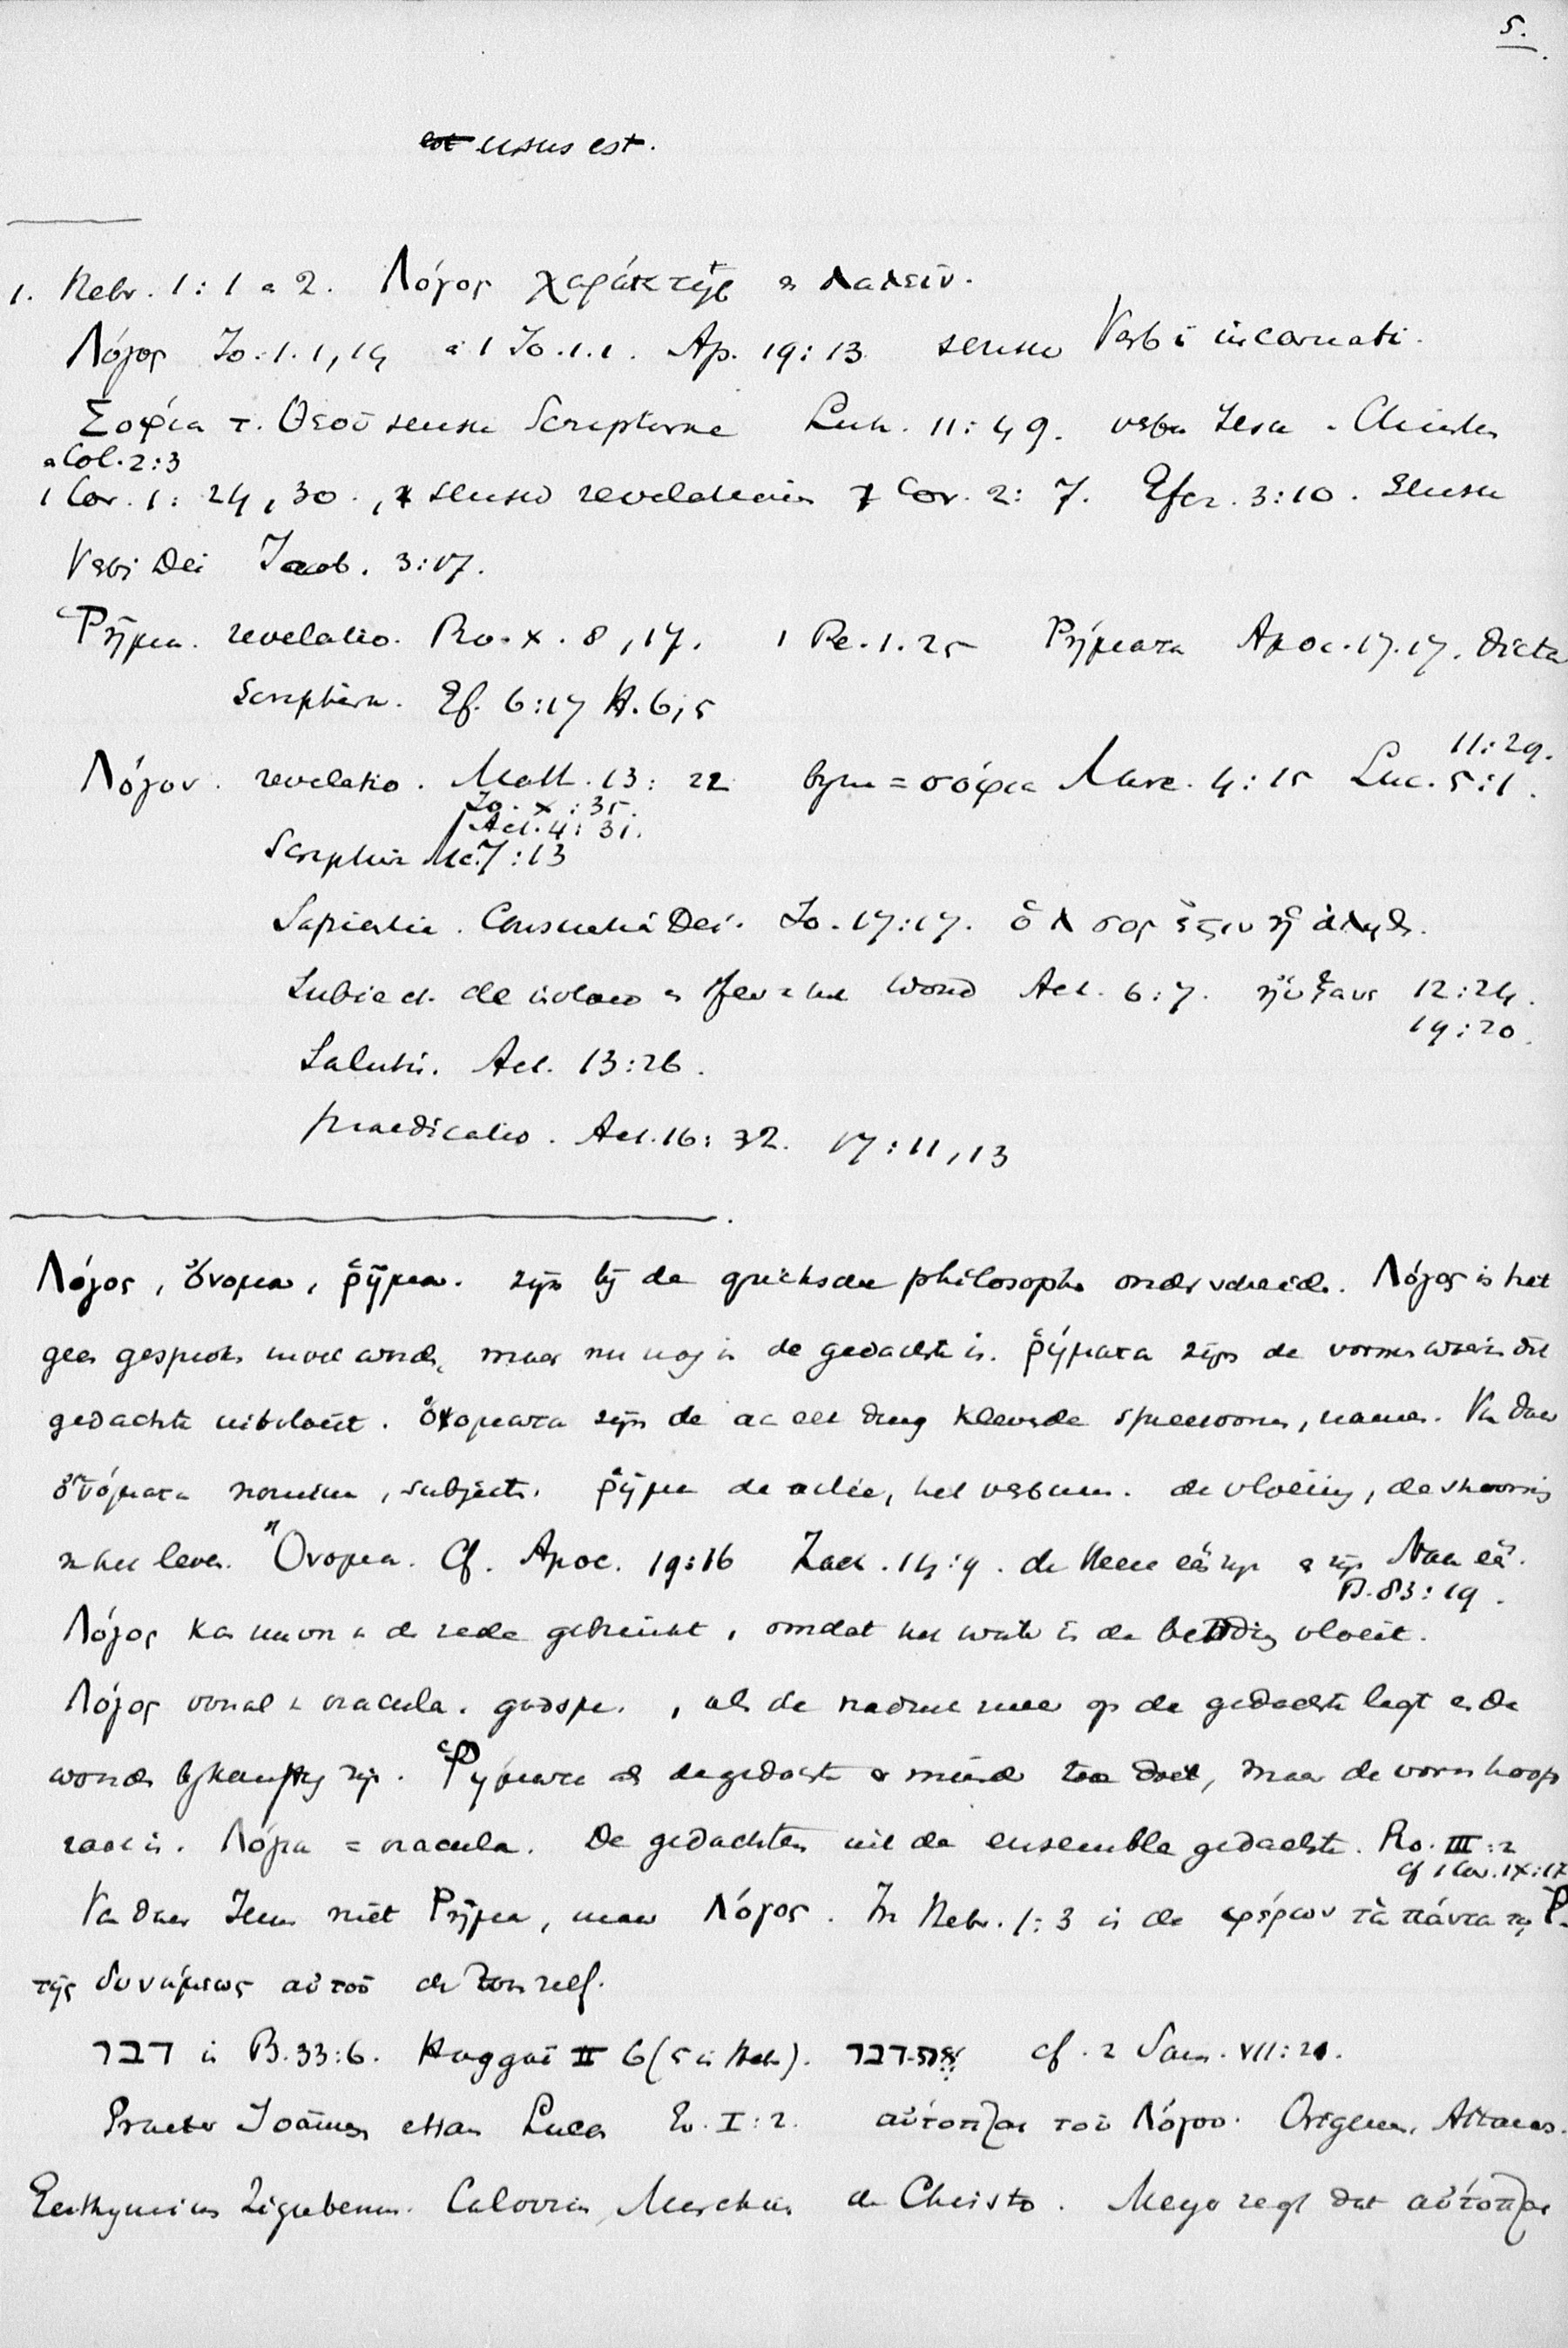 5.
est usus est.
1. Hebr. 1:1 a 2. Λόγος χαράκτήρ n λαλεῖν.
Λόγος Jo. 1.1, 14 a 1 Jo. 1.1. Ap. 19:13 sensu Verbi incarnati.
Σοφία τ. Θεοῦ sensu Scripturae Luk. 11:49. Christus
a Col. 2:3
1 Cor. 1:24, 30., sensu revelationis 1 Cor. 2:7. Efez. 3:10. Sensu
Verbi Dei Jacob. 3:17.
Ῥῆμα. revelatio. Ro. X. 8, 17. 1 Pe. 1.25 Ρήματα Apoc. 17.17. dicta
Scriptura. Ef. 6:17 H. 6,5
11:29.
Λόγον. revelatio. Matt. 13:22 = σόφια Marc. 4:15 Luc. 5:1.
Jo. X:35.
Act. 4:31.
Scriptura Mc. 7:13
Sapientia. Dei. Jo. 17:17. ὁ λ σος ἐστιν ἡ ἀληθ.
Subject. de woord Act. 6:7. ηὔξανε 12:24.
19:20.
Salutis. Act. 13:26.
praedicatio. Act. 16:32. 17:11, 13
Λόγος, ὄνομα, ῥῆμα. zijn bij de grieksche philosophen onderscheiden. Λόγος is het
geen gesproken word, maar nu nog in de gedachte is. ῥήματα zijn de vormen waarin die
gedachte uitvloeit. ὄνοματα zijn de aan een ding klevende spreekvormen, namen. Van daar
ὀνόματα nomina, subjecta. ῥῆμα de actie, het verbum. de vloeiing, de strooming
n het leven. Ὄνομα. Cf. Apoc. 19:16 Zach. 14:9. de Heere één zijn en zijn Naam één.
Ps. 83:19.
Λόγος kan de rede gebruikt, omdat het in de vloeit.
Λόγος vooral oracula. godsspr., als de nadruk meer op de gedachte legt en de
woorden bijkomstig zijn. Ῥήματα als de gedachte er minder toe doet, maar de vorm hoofd
zaak is. Λόγια = oracula. De gedachten uit de ensemble gedachte. Ro. III:2
cf 1 Cor. IX:17
Van daar Jezus niet Ῥῆμα, maar Λόγος. In Hebr. 1:3 is de φέρων τὰ πάντα τῳ Ρ.
τῆς δυνάμεως αὐτοῦ de Zoon zelf.
דבר in Ps. 33:6. Haggaï II 6 (5 in Heb). cf. 2 Sam. VII:21.
Praeter Joannes etiam Lucas Ev. I:2. αὐτόπται τοῦ Λόγου. Origenes, Athanas.
Euthymius Zigabenus. Calovius, de Christo. Meyer zegt dat αὐτόπται